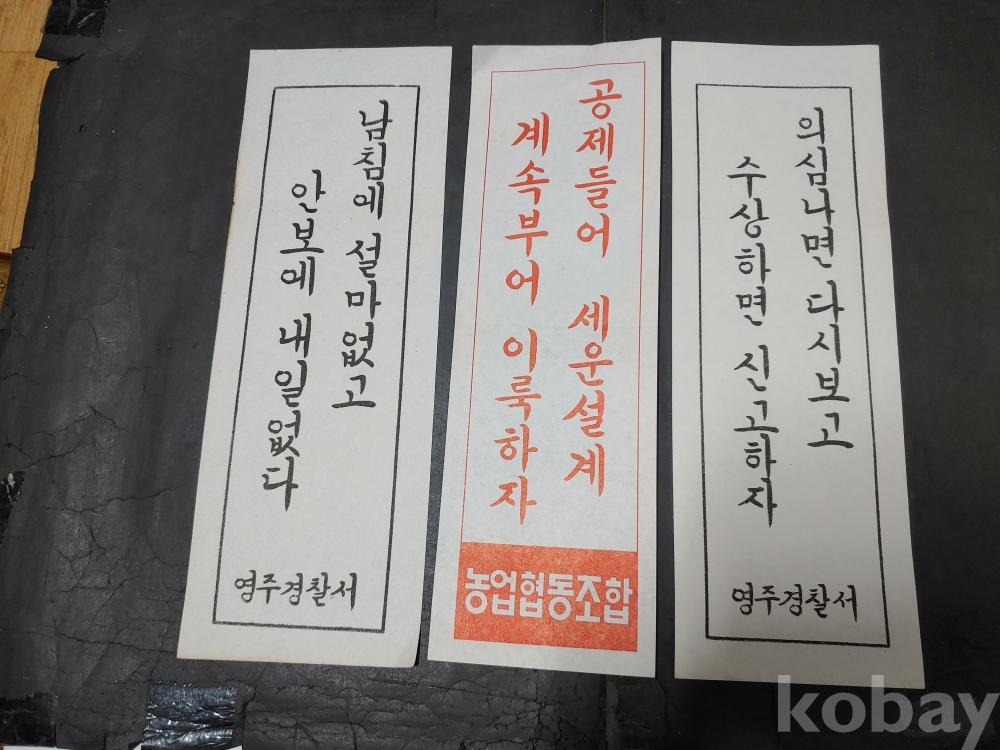 남침에 설마없고
안보에 내일없다
영주경찰서
공제들어 세운설계
계속부어 이룩하자
농업협동조합
의심나면 다시보고
수상하면 신고하자
영주경찰서
kobay